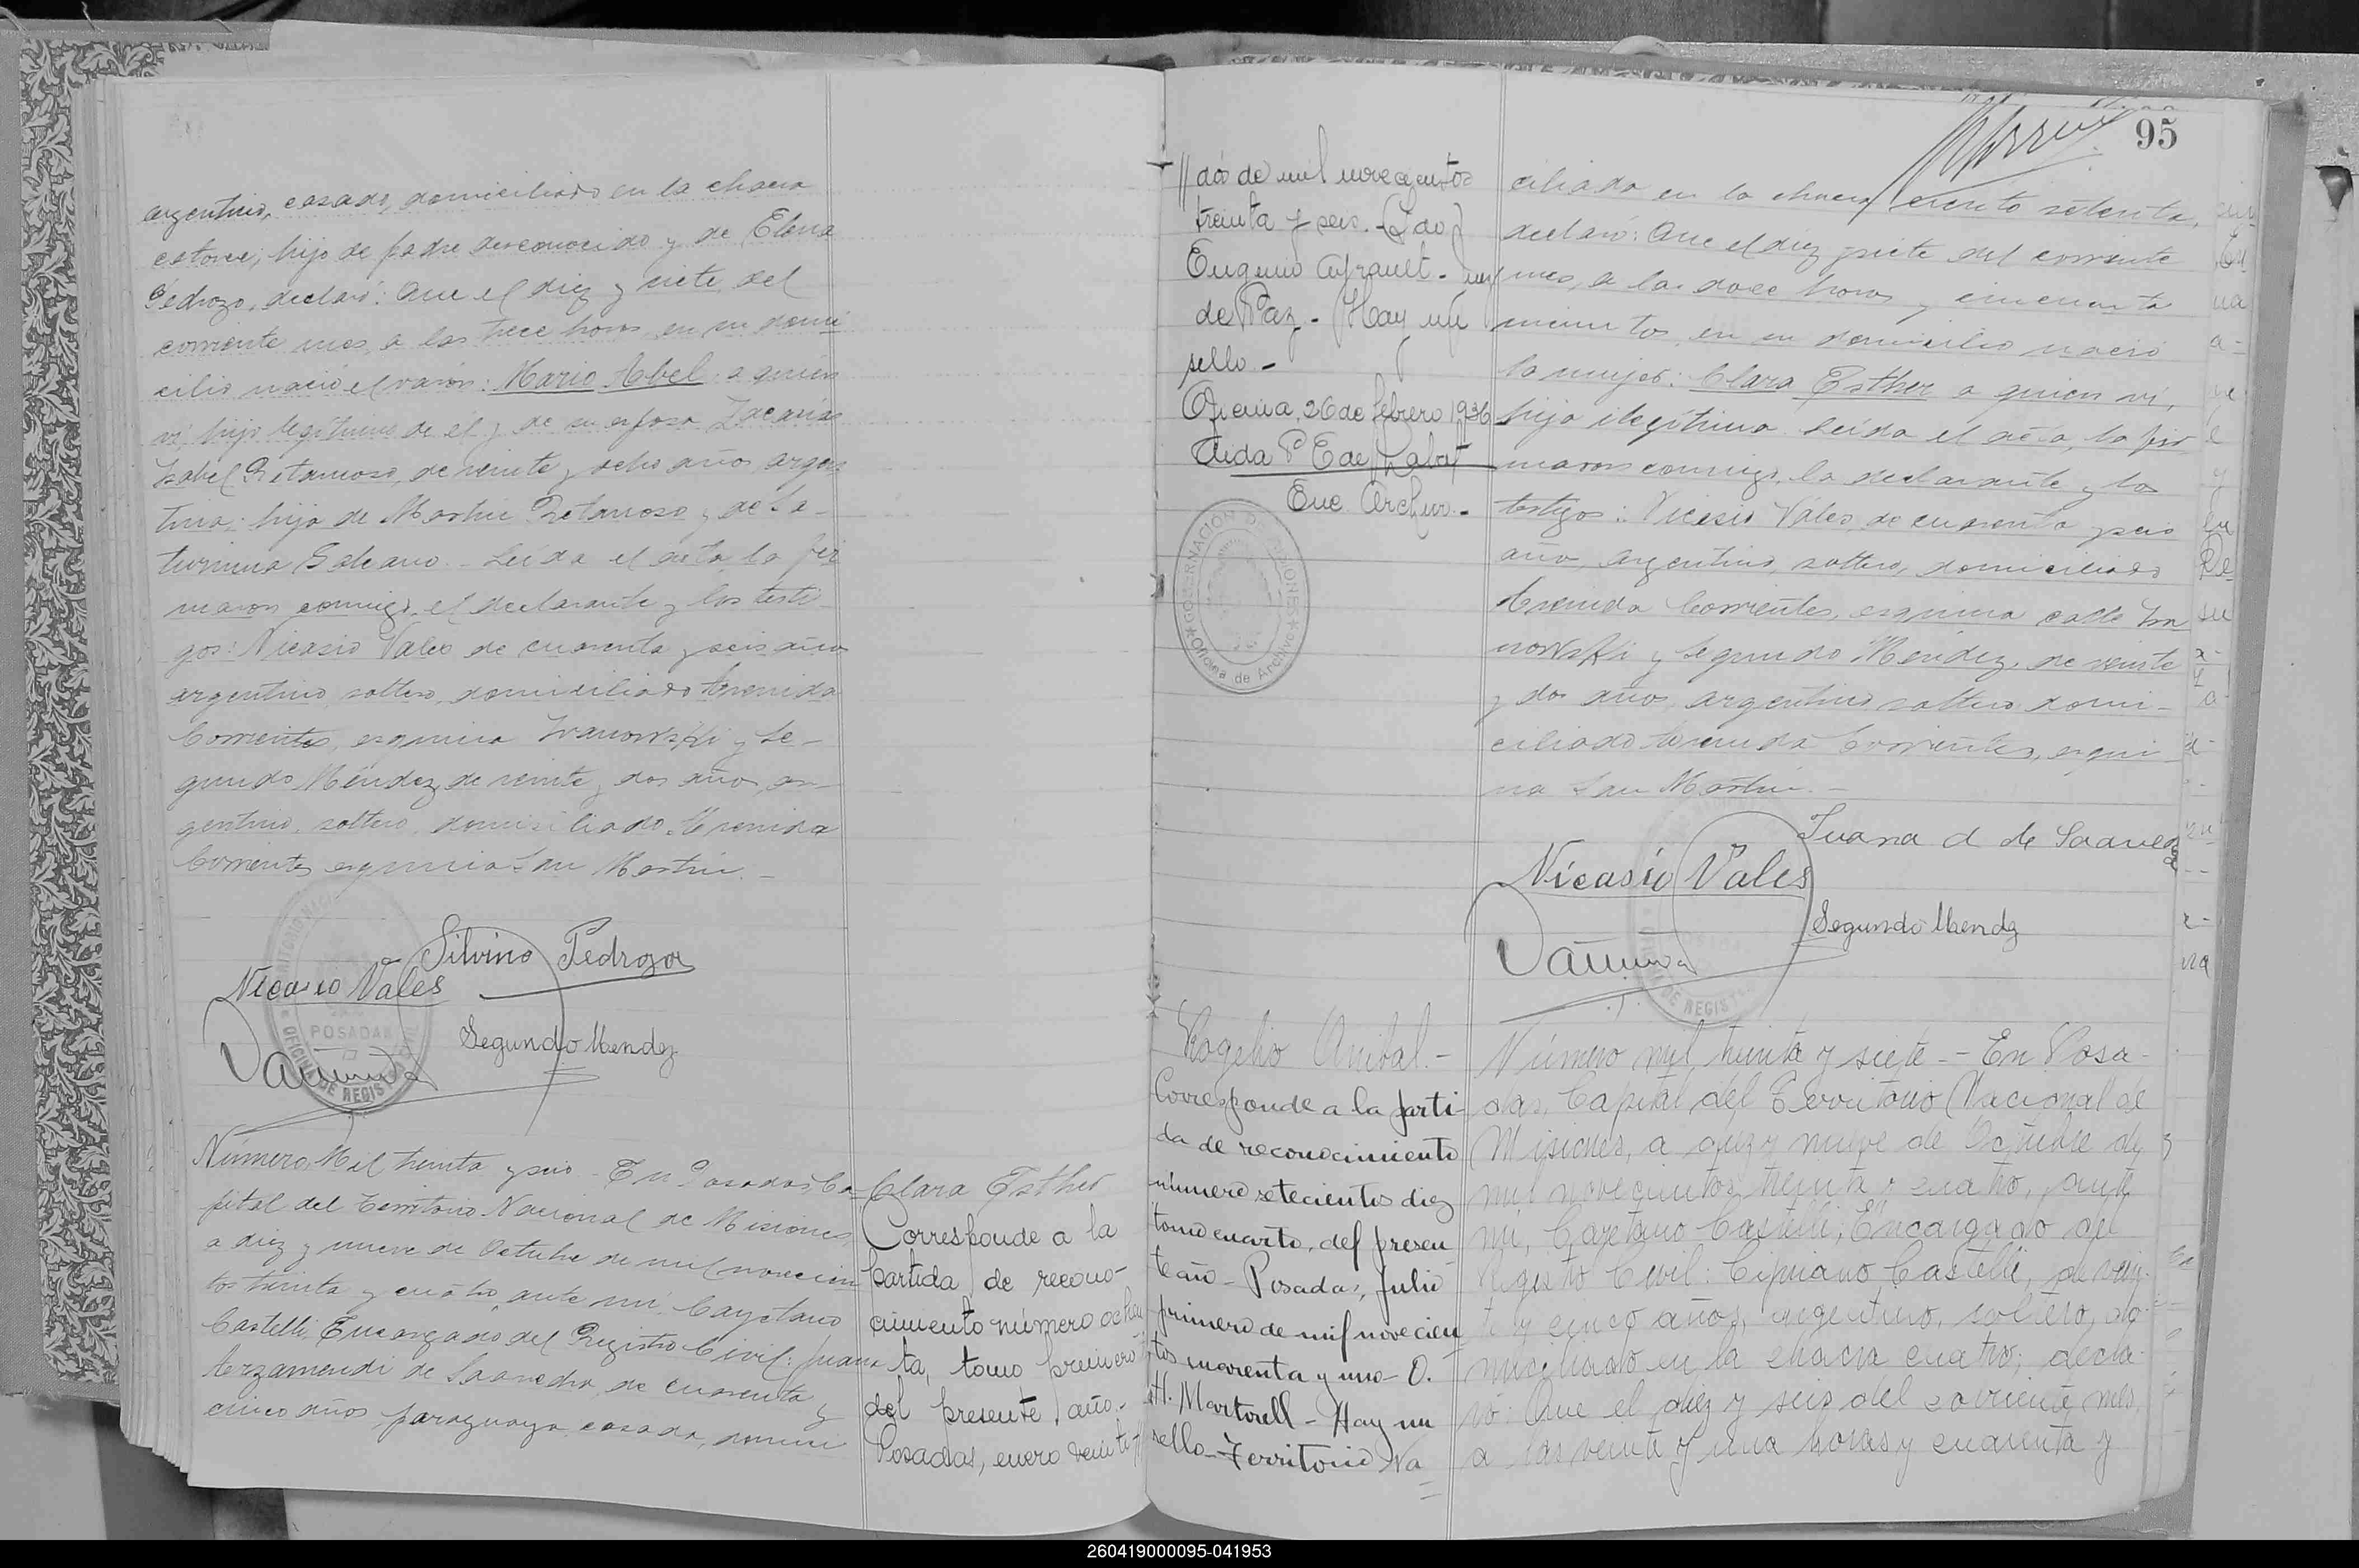 argentino, casado, domiciliado en la chacra
catorce; hijo de padre desconocido y de Elena
Pedrozo, declaró: Que el diez y siete del
corriente mes, a las trece horas, en su domi
cilio nació el varón: Mario Abel a quien
vi, hijo legítimo de él y de su esposa Zacarías
Isabel Retamoso, de veinte y ocho años, argen
tina; hija de Martin Retamoso y de Sa-
turnina Galeano. - Leída el acta la fir
maron conmigo, el declarante y los testi
gos: Nicasio Vales de cuarenta y seis años
argentino, soltero, domiciliado Avenida
Corrientes, esquina Ivanowski y Se-
gundo Méndez, de veinte y dos años, ar-
gentino, soltero, domiciliado Avenida
Corrientes esquina San Martin. -
Silvino Pedrozo
Nicasio Vales
POSADAS
Segundo Mendez
OFICINA DE REGISTRO CIVIL
Número Mil treinta y seis - En Posadas, Ca-
pital del Territorio Nacional de Misiones,
a diez y nueve de Octubre de mil novecien
tos treinta y cuatro, ante mi, Cayetano
Castelli, Encargado del Registro Civil: Juana
de Saavedra, de cuarenta y
cinco años, paraguaya, casada, domi
Clara Esther
Corresponde a la
partida de recono-
cimiento número ochen
ta, tomo primero
del presente año.-
Posadas, enero veinti-
//dós de mil novecientos
treinta y seis. - (Fdo)
Eugenio
de Paz. - Hay un
sello. -
Oficina, 26 de febrero 1936
Aida P E de Rabat
Enc. Archivo. -
GOBERNACION DE MISIONES
Oficina de Archivo
95
ciliada en la chacra ciento setenta,
declaró: Que el diez y siete del corriente
mes, a las doce horas y cincuenta
minutos, en su domicilio nació
la mujer: Clara Esther a quien vi,
hija ilegítima. Leída el acta, la fir
maron conmigo, la declarante y los
testigos: Nicasio Vales, de cuarenta y seis
años, argentino, soltero, domiciliado
Avenida Corrientes, esquina calle Iva
nowski y Segundo Méndez, de veinte
y dos años, argentino soltero, domi-
ciliado Avenida Corrientes, esqui-
na San Martin. -
Juana d de Saavedra
Nicasio Vales
Segundo Mendez
Rogelio Anibal. -
Corresponde a la parti-
da de reconocimiento
número setecientos diez
tomo cuarto, del presen
te año - Posadas, Julio
primero de mil novecien
tos cuarenta y uno - O.
H. Martorell - Hay un
sello - Territorio Na
Número mil treinta y siete - - En Posa-
das, Capital del Territorio Nacional de
Misiones, a diez y nueve de Octubre de
mil novecientos treinta y cuatro, ante
mi, Cayetano Castelli, Encargado del
Registo Civil: Cipriano Castelli, de vein-
te y cinco años, argentino, soltero, do-
miciliado en la chacra cuatro; decla-
ró: Que el diez y seis del corriente mes,
a las veinte y una horas y cuarenta y
260419000095-041953